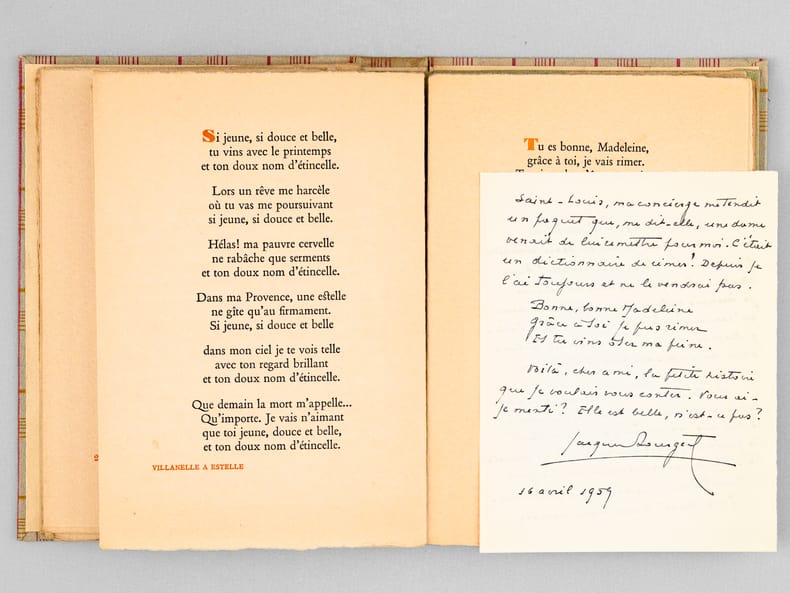 Si jeune, si douce et belle,
tu vins avec le printemps
et ton doux nom d'étincelle.
Lors un rêve me harcèle
où tu vas me poursuivant
si jeune, si douce et belle.
Hélas! ma pauvre cervelle
ne rabâche que serments
et ton doux nom d'étincelle.
Dans ma Provence, une estelle
ne gîte qu'au firmament.
Si jeune, si douce et belle
dans mon ciel je te vois telle
avec ton regard brillant
et ton doux nom d'étincelle.
Que demain la mort m'appelle...
Qu'importe. Je vais n'aimant
que toi jeune, douce et belle,
et ton doux nom d'étincelle.
VILLANELLE A ESTELLE
2
Tu es bonne, Madeleine,
grâce à toi, je vais rimer.
Saint-Louis, ma concierge me tendit
un paquet que, me dit-elle, une dame
venait de lui remettre pour moi. C'était
un dictionnaire de rimes! Depuis je
l'ai toujours et ne le vendrai pas.
Bonne, bonne Madeleine
grâce à toi je puis rimer
Et tu vins ôter ma peine.
Voilà, cher ami, la petite histoire
que je voulais vous conter. Vous ai-
je menti? Elle est belle, n'est-ce pas?
16 avril 1959